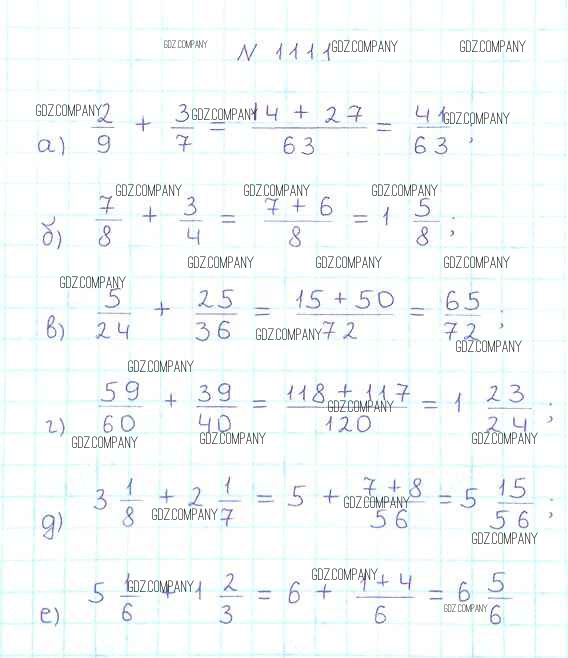 GDZ.COMPANY
N 1111 GDZ.COMPANY GDZ.COMPANY
GDZ.COMPANY GDZ.COMPANY GDZ.COMPANY
а) 2/9 + 3/7 = (14 + 27)/63 = 41/63 ;
GDZ.COMPANY GDZ.COMPANY GDZ.COMPANY
б) 7/8 + 3/4 = (7 + 6)/8 = 1 5/8 ;
GDZ.COMPANY GDZ.COMPANY GDZ.COMPANY
GDZ.COMPANY
в) 5/24 + 25/36 = (15 + 50)/72 = 65/72 ;
GDZ.COMPANY GDZ.COMPANY
GDZ.COMPANY
г) 59/60 + 39/40 = (118 + 117)/120 = 1 23/24 ;
GDZ.COMPANY
GDZ.COMPANY GDZ.COMPANY
д) 3 1/8 + 2 1/7 = 5 + (7 + 8)/56 = 5 15/56 ;
GDZ.COMPANY GDZ.COMPANY
GDZ.COMPANY
GDZ.COMPANY GDZ.COMPANY
е) 5 1/6 + 1 2/3 = 6 + (1 + 4)/6 = 6 5/6
GDZ.COMPANY